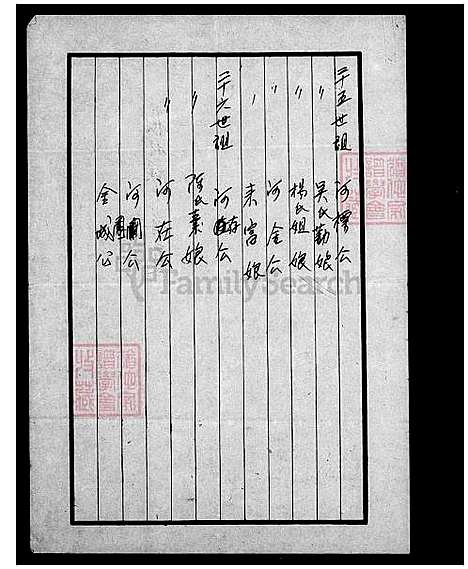 二十五世祖 河標公
〃 吳氏勤娘
〃 楊氏姐娘
〃 河金公
〃 來富娘
二十六世祖 河存公
〃 陳氏素娘
〃 河在公
河圍公
金城公
FamilySearch